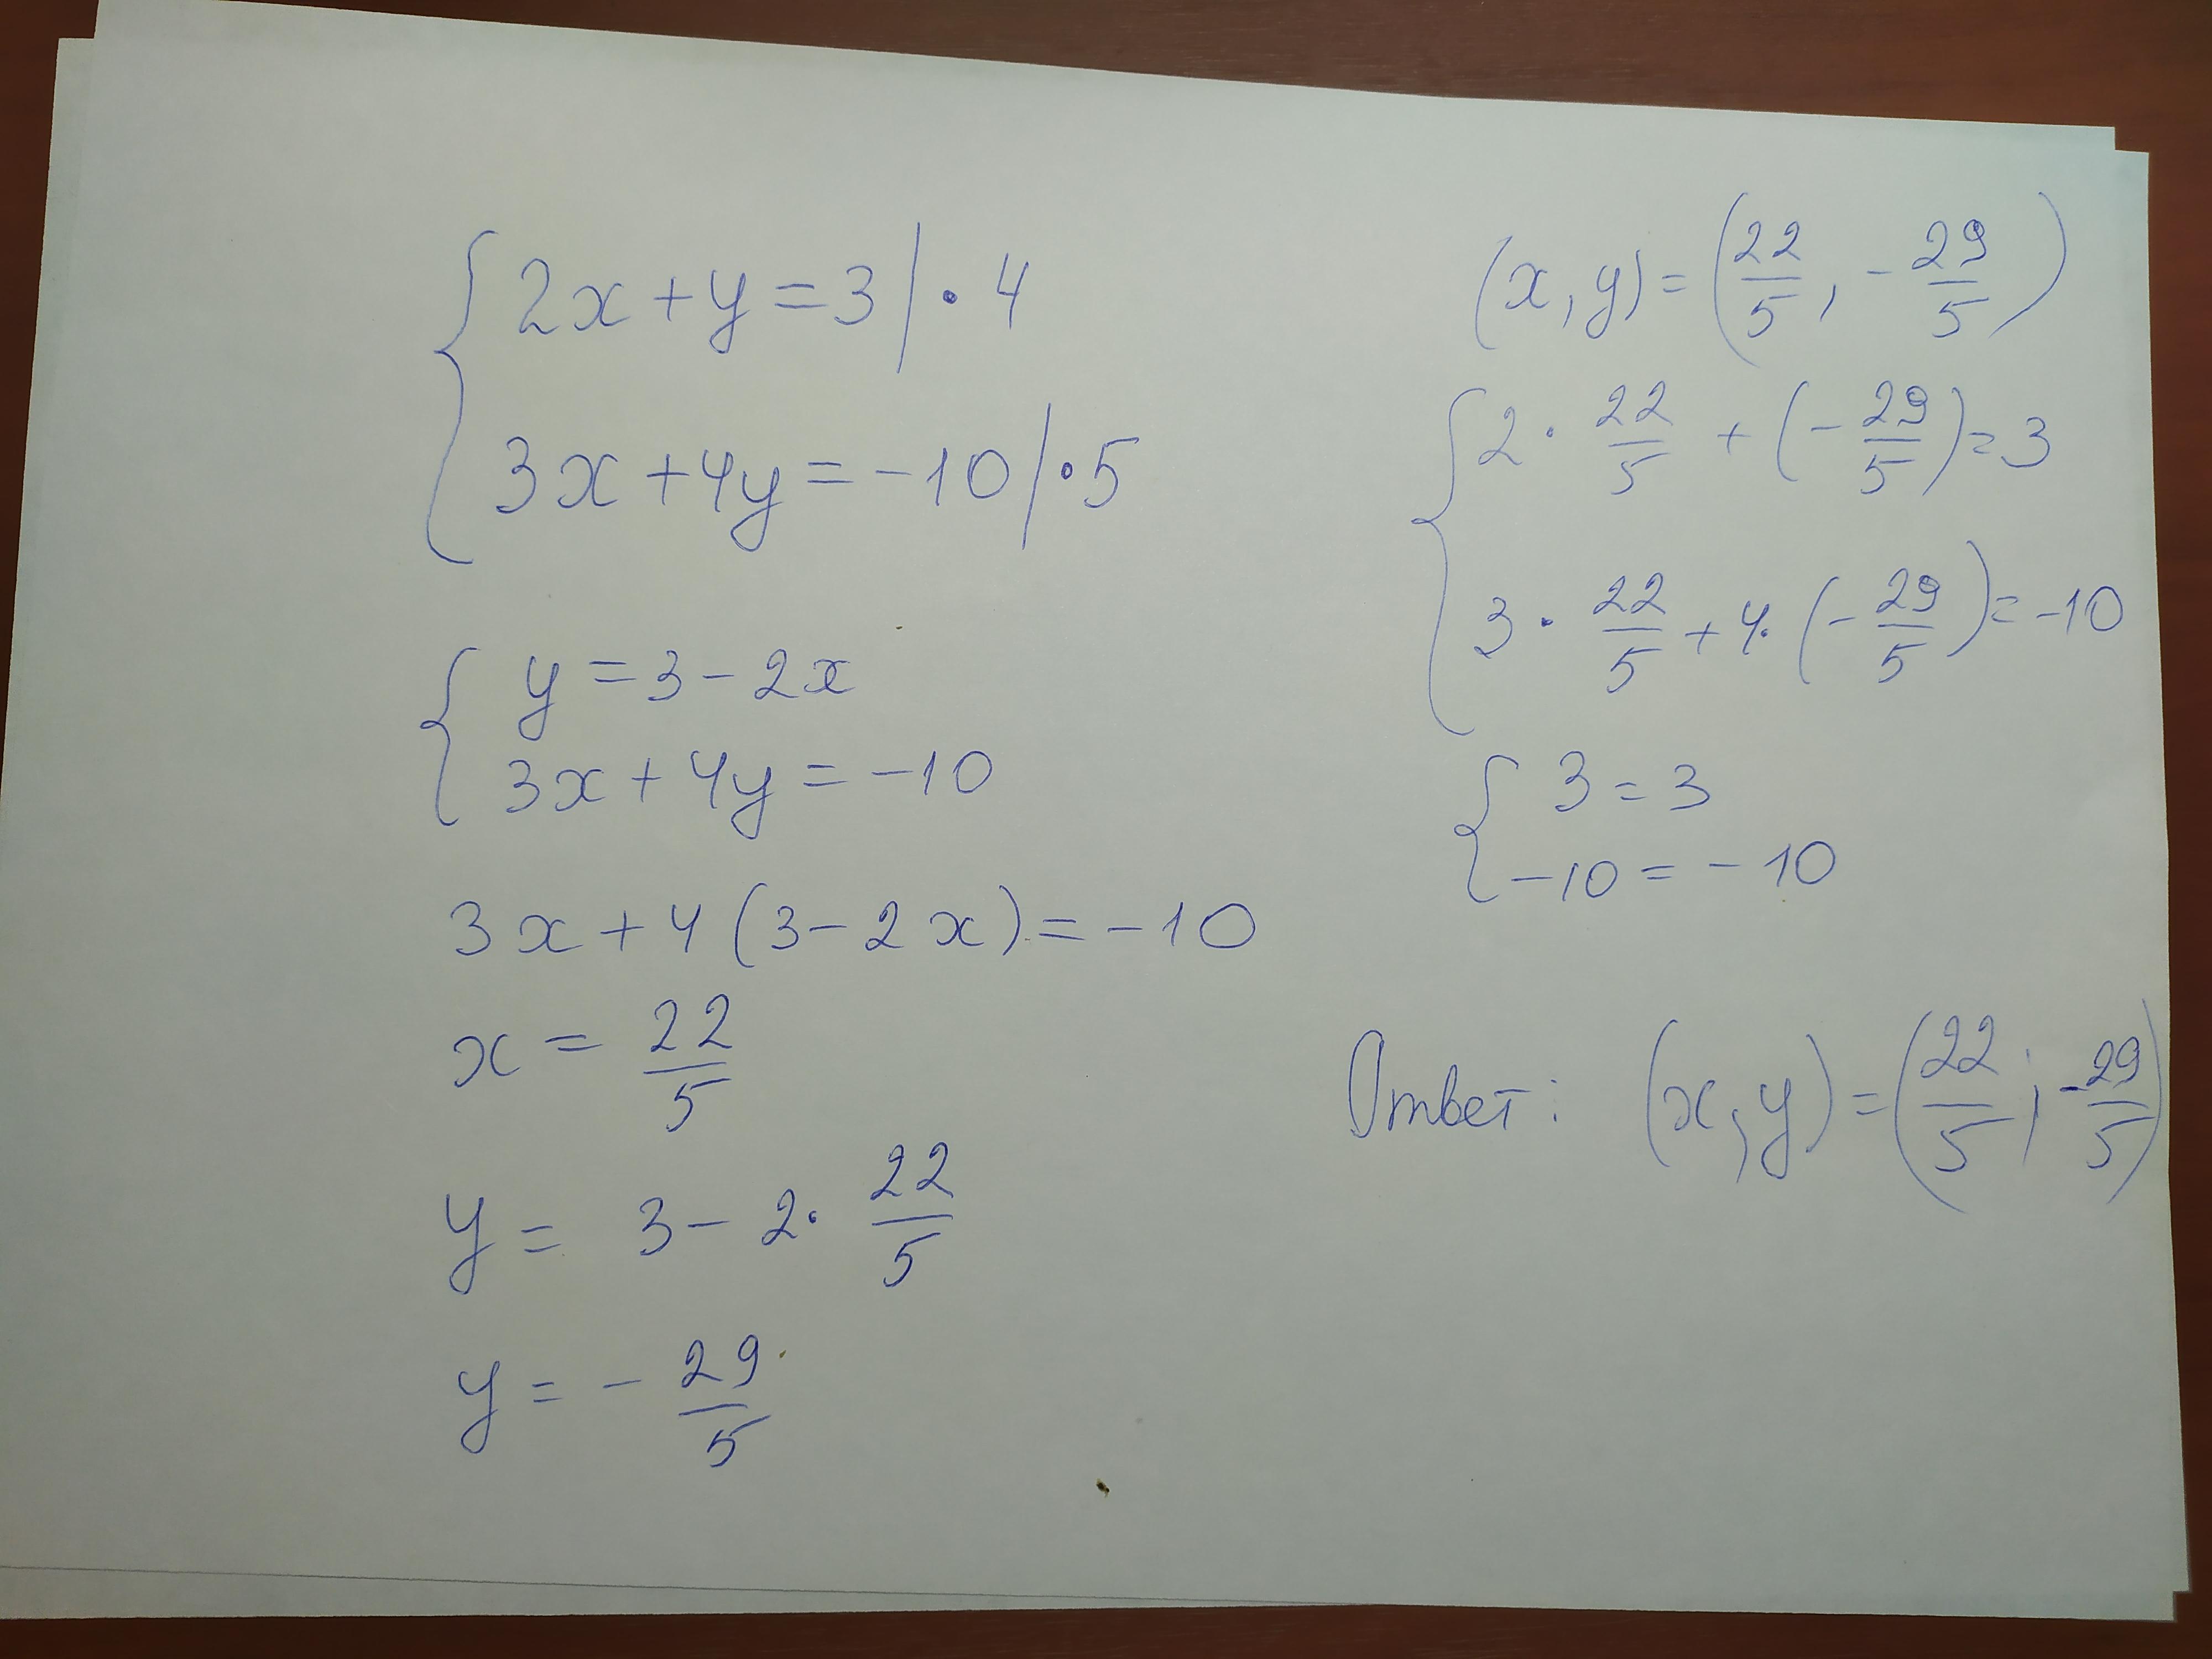 { 2x + y = 3 | · 4
3x + 4y = -10 | · 5
{ y = 3 - 2x
3x + 4y = -10
3x + 4 (3 - 2x) = -10
x = 22/5
y = 3 - 2 · 22/5
y = - 29/5
(x, y) = (22/5, - 29/5)
{ 2 · 22/5 + (- 29/5) = 3
3 · 22/5 + 4 · (- 29/5) = -10
{ 3 = 3
-10 = -10
Ответ: (x, y) = (22/5; -29/5)